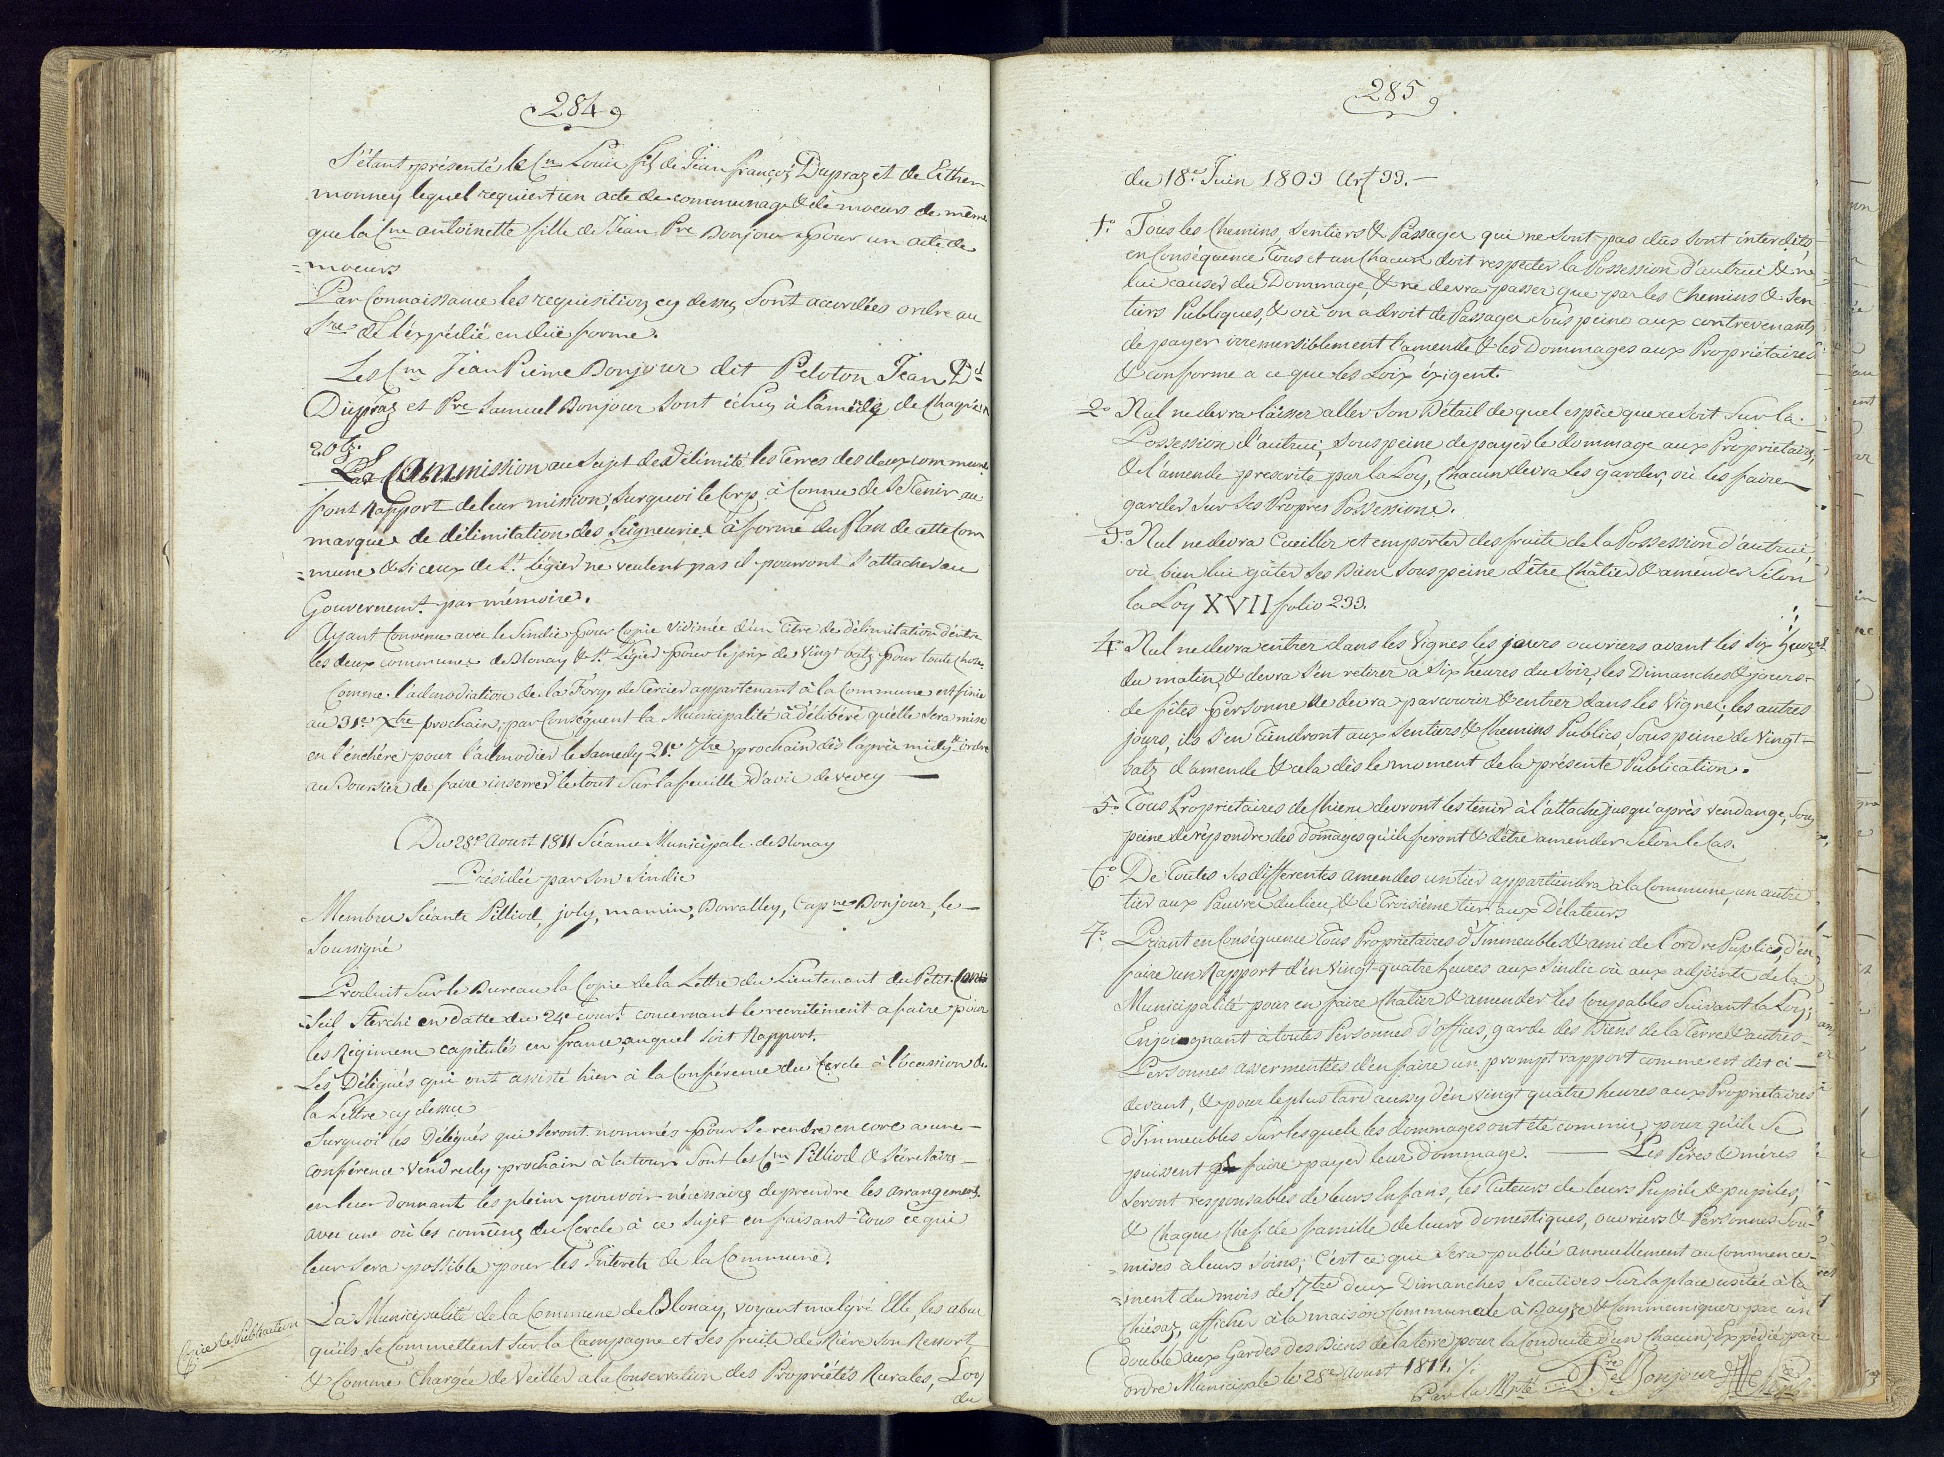 284
S'étant présenté le Cn Louis fils de Jean françois Dupraz et de Esther
monney lequel requiert un acte de communage & de moeurs de même
que la Cne antoinette fille de Jean Pre Bonjour pour un acte de
=moeurs
Par Connaissance les requisitions cy dessus Sont accordées ordre au
Sre de l'éxpédié en düe forme.
Les Cns Jean Pierre Bonjour dit Peloton Jean Dd
Dupraz et Pre Samuel Bonjour Sont échus à l'amende de Chaq'un
20 bz.
La Commission au Sujet de Délimité les Terres des deux communes
font Rapport de leur mission, Surquoi le Corp à Connu de Se Tenir au
marques de délimitation des Seigneuries à formé du Plan de cette Com
=mune & Si ceux de St. Légier ne veulent pas il pourront S'attacher au
Gouvernemt. par mémoire.
Ayant Convenu avec le Sindic pour Copie vidimée d'un Titre de délimitation d'entre
les deux communes de Blonay & St. Légier pour le prix de Vingt batz pour toute Chose.
Comme l'admodiation de la Forge de Tercier appartenant à la Commune est finie
au 31e Xbre prochain, par Conséquent la Municipalité à délibéré qu'elle Sera mise
en l'enchére pour l'admodier le Samedy 21e 7bre prochain dès l'après midy & ordre
au Boursier de faire inserrer le tout Sur la feuille d'avis de vevey —
Du 28e Aoust 1811 Séance Municipale de Blonay
Présidée par son Sindic
Membres Séants Pilliod, joly, mamin, Borralley, Capne Bonjour, le
Soussigné
Produit Sur le Bureau la Copie de la Lettre du Lieutenant du Petit Con
=seil Sterchi en datte du 24e courT. concernant le recrutement a faire pour
les Régimens capitulés en france, auquel soit Rapport.
Les Délégués qui ont assisté hier à la Conférence du Cercle à l'occasion de
la Lettre cy dessus
Surquoi les Délégués qui Seront nommés pour Se rendre encore a une
conférence vendredy prochain à la tour Sont les Cns Pilliod & Sécrétaire
en leur donnant les pleins pouvoirs nécessaires de prendre les arrangements
avec une où les comunes du Cercle à ce Sujet en faisant Tous ce qui
leur sera possible pour les Interets de la Commune.
Copie de Publication
La Municipalité de la Commune de Blonay, voyant malgré Elle, les abus
qu'ils Se Commettent sur la Campagne et Ses fruits de Rière Son Ressort,
& Comme Chargée de Veiller a la Conservation des Propriétés Rurales, Loy
du
285
du 18e Juin 1803 Art 33.—
1o. Tous les Chemins, Sentiers & Passages qui ne Sont pas dûs Sont interdits,
en Conséquence Tous et un Chacun doit respecter la Possession d'autrui & ne
lui causer du Dommage, & ne devra passer que par les Chemins & Sen
tiers Publiques, & où on a droit de Passage Sous peine aux contrevenants
de payer irremisiblement l'amende & les Dommages aux Proprietaires
& conforme a ce que les Loix éxigent.
2o Nul ne devra laisser aller Son Bétail de quel espèce que ce Soit Sur la
Possession d'autrui, Sous peine de payer le dommage aux Proprietaires,
& l'amende prescrite par la Loy, Chacun devra les garder, où les faire
garder Sur Ses Propres Possessions.
3o. Nul ne devra Cueillir et emporter des fruits de la Possession d'autrui,
où bien lui gâter Ses Biens Sous peine d'être Châtier & amender Selon
la Loy XVII folio 233.
4o Nul ne devra entrer dans les Vignes les jours ouvriers avant les Six heures
du matin, & devra S'en retirer à Six heures du Soir, les Dimanches & jours
de fêtes Personne ne devra parcourir & entrer dans les Vignes, les autres
jours, ils S'en tiendront aux Sentiers & Chemins Publics, Sous peine de Vingt
batz d'amende & cela dès le moment de la présente Publication.
5o Tous Proprietaires de Chiens devront les tenir à l'attache jusqu'après Vendange, Sous
peine de répondre des domages qu'ils feront & d'être amender Selon le Cas.
6o De Toutes Ses différentes amendes un tier appartiendra à la Commune, un autre
tier aux Pauvres du lieu, & le Troisième tier aux Délateurs
7o. Priant en Conséquence Tous Proprietaires d'Immeubles & ami de l'ordre Public, d'en
faire un Rapport d'en Vingt-quatre heures aux Sindic où aux adjoints de la
Municipalité pour en faire Chatier & amender les Coupables Suivant la Loy;
Enjoignant à toutes Personnes d'offices, garde des Biens de la Terre & autres
Personnes assermentées d'en faire un prompt rapport comme est dit ci—
devant, & pour le plus tard aussy d'en vingt quatre heures aux Proprietaires
d'Immeubles Sur lesquels les dommages ont été commis, pour qu'ils Se
puissent faire payer leur dommage. — Les Péres & mères
Seront responsables de leurs Enfans, les Tuteurs de leurs Pupils & pupiles,
& Chaque Chef de famille de leurs domestiques, ouvriers & Personnes Sou-
=mises a leurs Soins; C'est ce que Sera publié annuellement au Commence
=ment du mois de 7bre deux Dimanches Secutives Sur la place usitée à la
Chiésaz, afficher à la maison Communale à Bayse & Communiquer par un
double aux Gardes des Biens de la terre pour la Conduite d'un Chacun, Expédié par
ordre Municipale le 28e aoust 1811.
Par la Mpté Bonjour